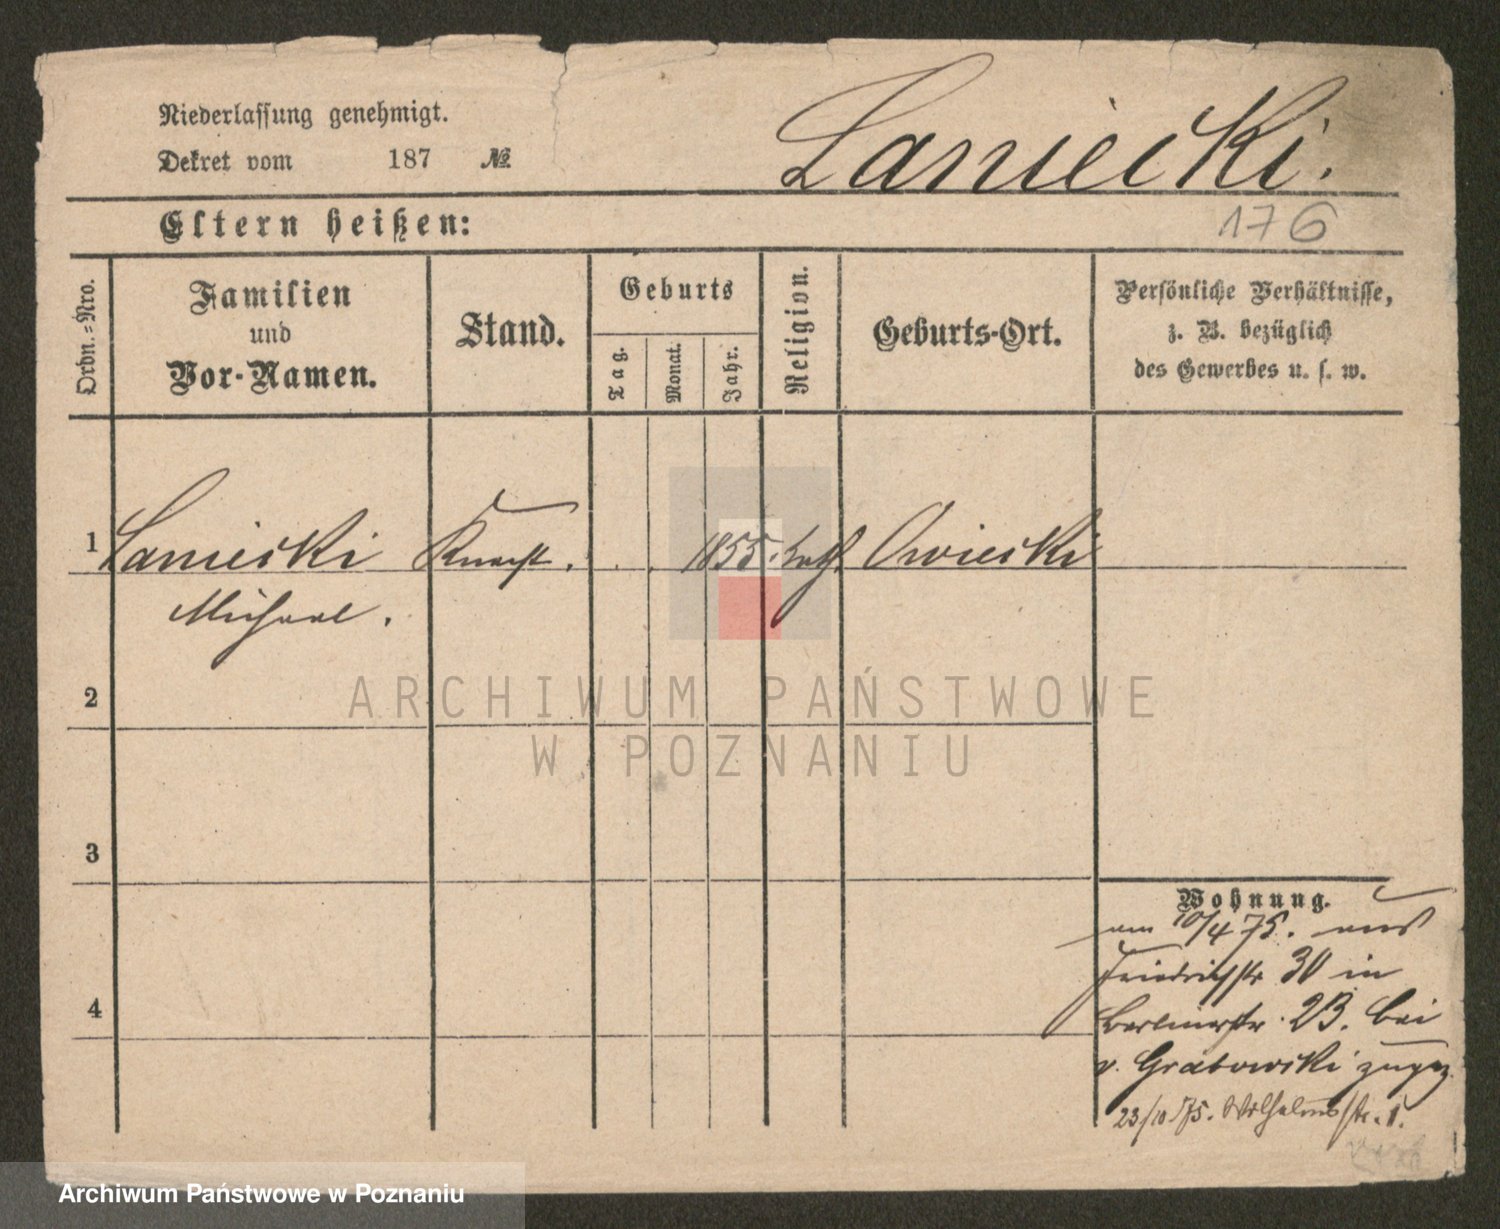 Niederlassung genehmigt.
Dekret vom 187 №
Laniecki.
Eltern heißen:
176
Ordn.=Nro.
Familien
und
Vor-Namen.
Stand.
Geburts
Tag.
Monat.
Jahr.
Religion.
Geburts-Ort.
Persönliche Verhältnisse,
z. B. bezüglich
des Gewerbes u. s. w.
1 Laniecki Knecht. 1855. kath. Owiecki
Michael.
2
3
4
Wohnung.
am 10/4 75. aus
Friedrichstr 30 in
Berlinerstr. 23. bei
v. Grabowski zugez.
23/10 75. Wilhelmsstr. 1.
ARCHIWUM PAŃSTWOWE
W POZNANIU
Archiwum Państwowe w Poznaniu